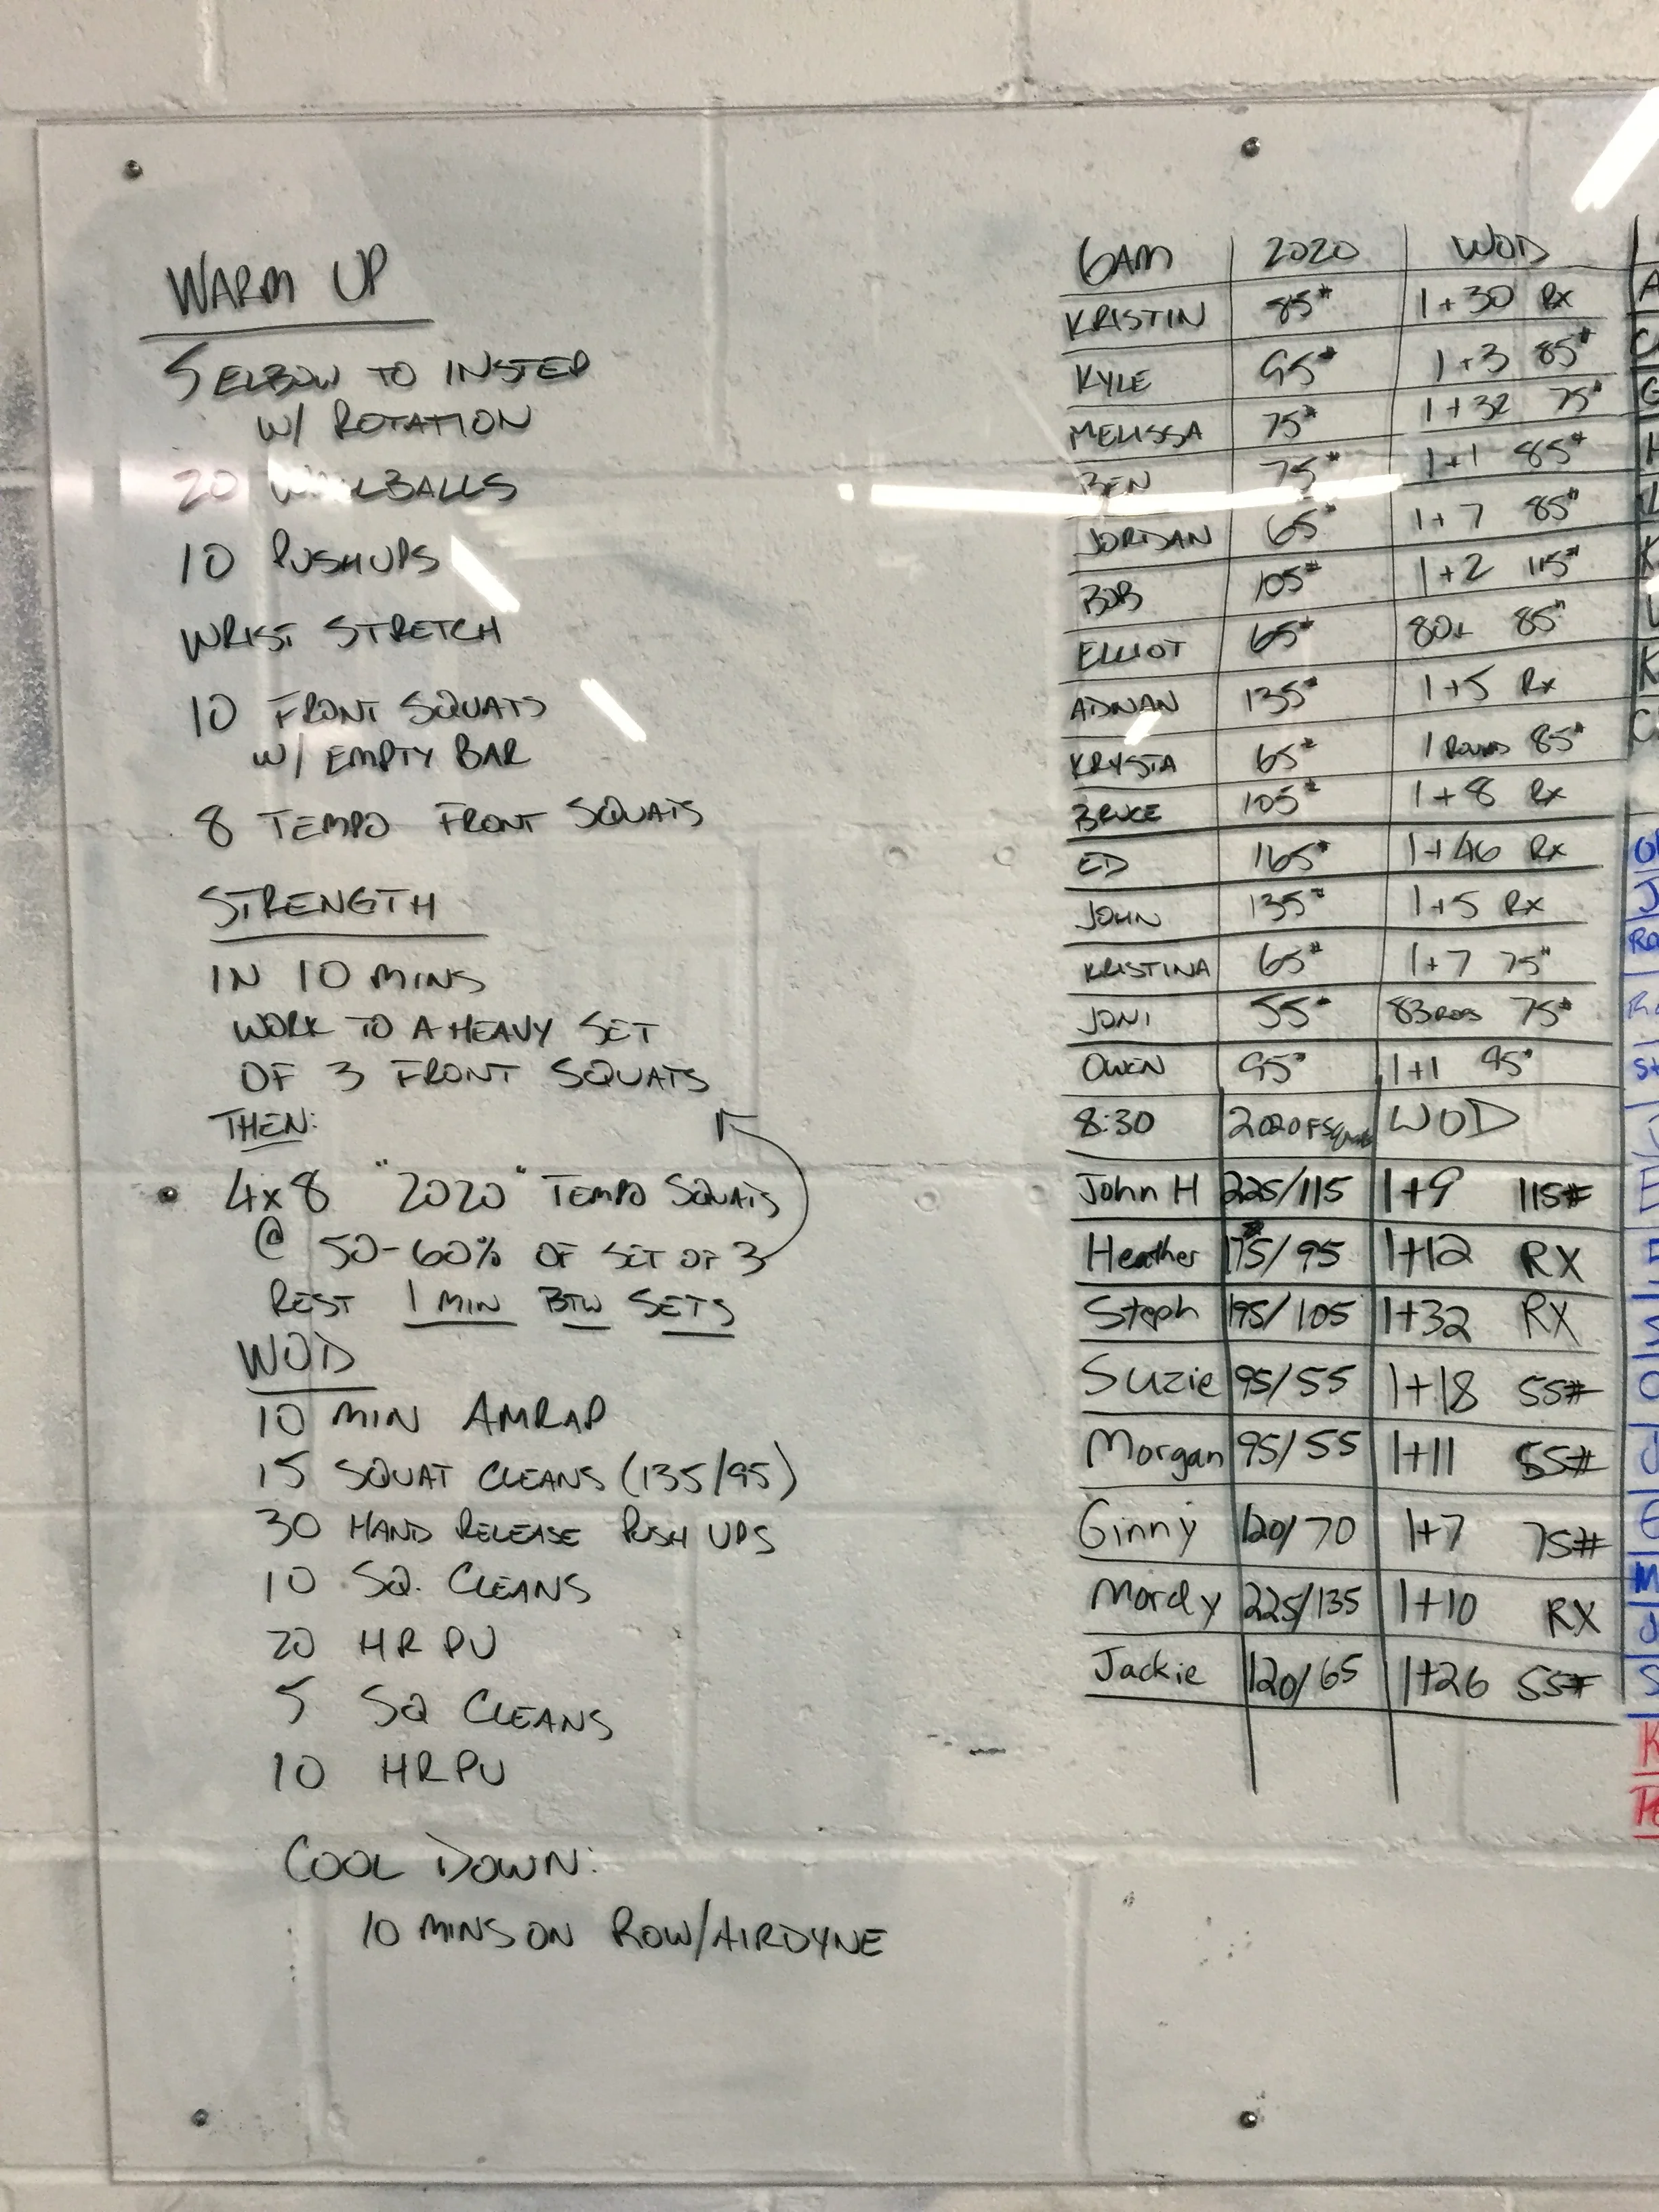 WARM UP
5 ELBOW TO INSTEP
W/ ROTATION
20 WALLBALLS
10 PUSHUPS
WRIST STRETCH
10 FRONT SQUATS
W/ EMPTY BAR
8 TEMPO FRONT SQUATS
STRENGTH
IN 10 MINS
WORK TO A HEAVY SET
OF 3 FRONT SQUATS
THEN:
4x8 "2020" TEMPO SQUATS
@ 50-60% OF SET OF 3
REST 1 MIN BTW SETS
WOD
10 MIN AMRAP
15 SQUAT CLEANS (135/95)
30 HAND RELEASE PUSH UPS
10 SQ. CLEANS
20 HR PU
5 SQ CLEANS
10 HRPU
COOL DOWN:
10 MINS ON ROW/AIRDYNE
6AM 2020 WOD
KRISTIN 85# 1+30 Rx
KYLE 95# 1+3 85#
MELISSA 75# 1+32 75#
BEN 75# 1+1 85#
JORDAN 65# 1+7 85#
BOB 105# 1+2 115#
ELLIOT 65# 85#
ADNAN 135# 1+5 Rx
KRYSTA 65# 1 ROUND 85#
BRUCE 105# 1+8 Rx
ED 165# 1+46 Rx
JOHN 135# 1+5 Rx
KRISTINA 65# 1+7 75#
JONI 55# 83 REPS 75#
OWEN 95# 1+1 95#
8:30 2020 F Squat WOD
John H 225/115 1+9 115#
Heather 175/95 1+12 RX
Steph 195/105 1+32 RX
Suzie 95/55 1+18 55#
Morgan 95/55 1+11 55#
Ginny 120/70 1+7 75#
Mordy 225/135 1+10 RX
Jackie 120/65 1+26 55#